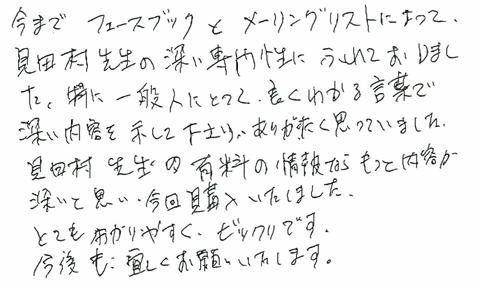 今まで フェースブックと メーリングリストによって、
見田村先生の深い専門性にふれておりまし
た。特に一般人にとって、良くわかる言葉で
深い内容を示して下さり、ありがたく思っていました。
見田村先生の有料の情報なら もっと内容が
深いと思い、今回購入いたしました。
とてもわかりやすく、ビックリです。
今後も、宜しくお願いいたします。